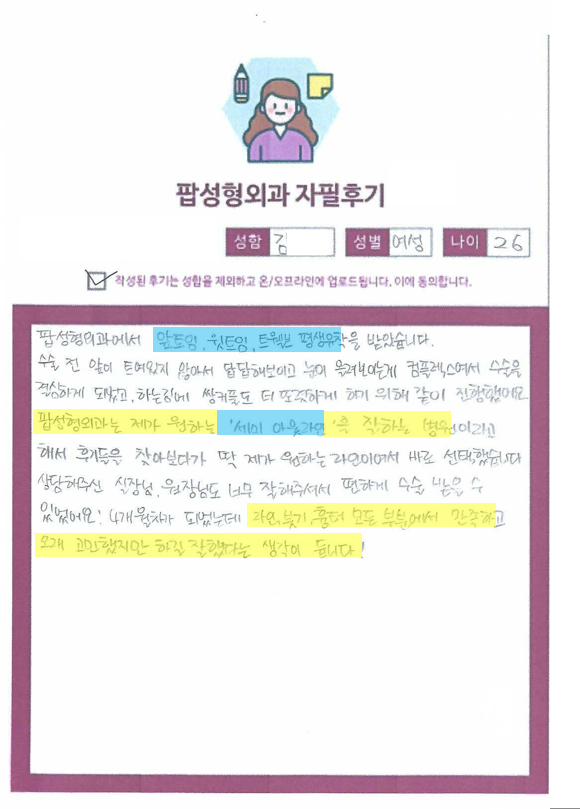 팝성형외과 자필후기
성함 김 성별 여성 나이 26
작성된 후기는 성함을 제외하고 온/오프라인에 업로드됩니다. 이에 동의합니다.
팝성형외과에서 앞트임, 윗트임, 트웰브 평생유착을 받았습니다.
수술 전 앞이 트여있지 않아서 답답해보이고 눈이 몰려보이는게 컴플렉스여서 수술을
결심하게 되었고, 하는김에 쌍커풀도 더 또렷하게 하기 위해 같이 진행했어요
팝성형외과는 제가 원하는 '세미 아웃라인'을 잘하는 병원이라고
해서 후기들을 찾아보다가 딱 제가 원하는 라인이여서 바로 선택했습니다
상담해주신 실장님, 원장님도 너무 잘해주셔서 편하게 수술 받을 수
있었어요! 4개월차가 되었는데 라인, 붓기, 흉터 모든 부분에서 만족하고
오래 고민했지만 하길 잘했다는 생각이 듭니다!